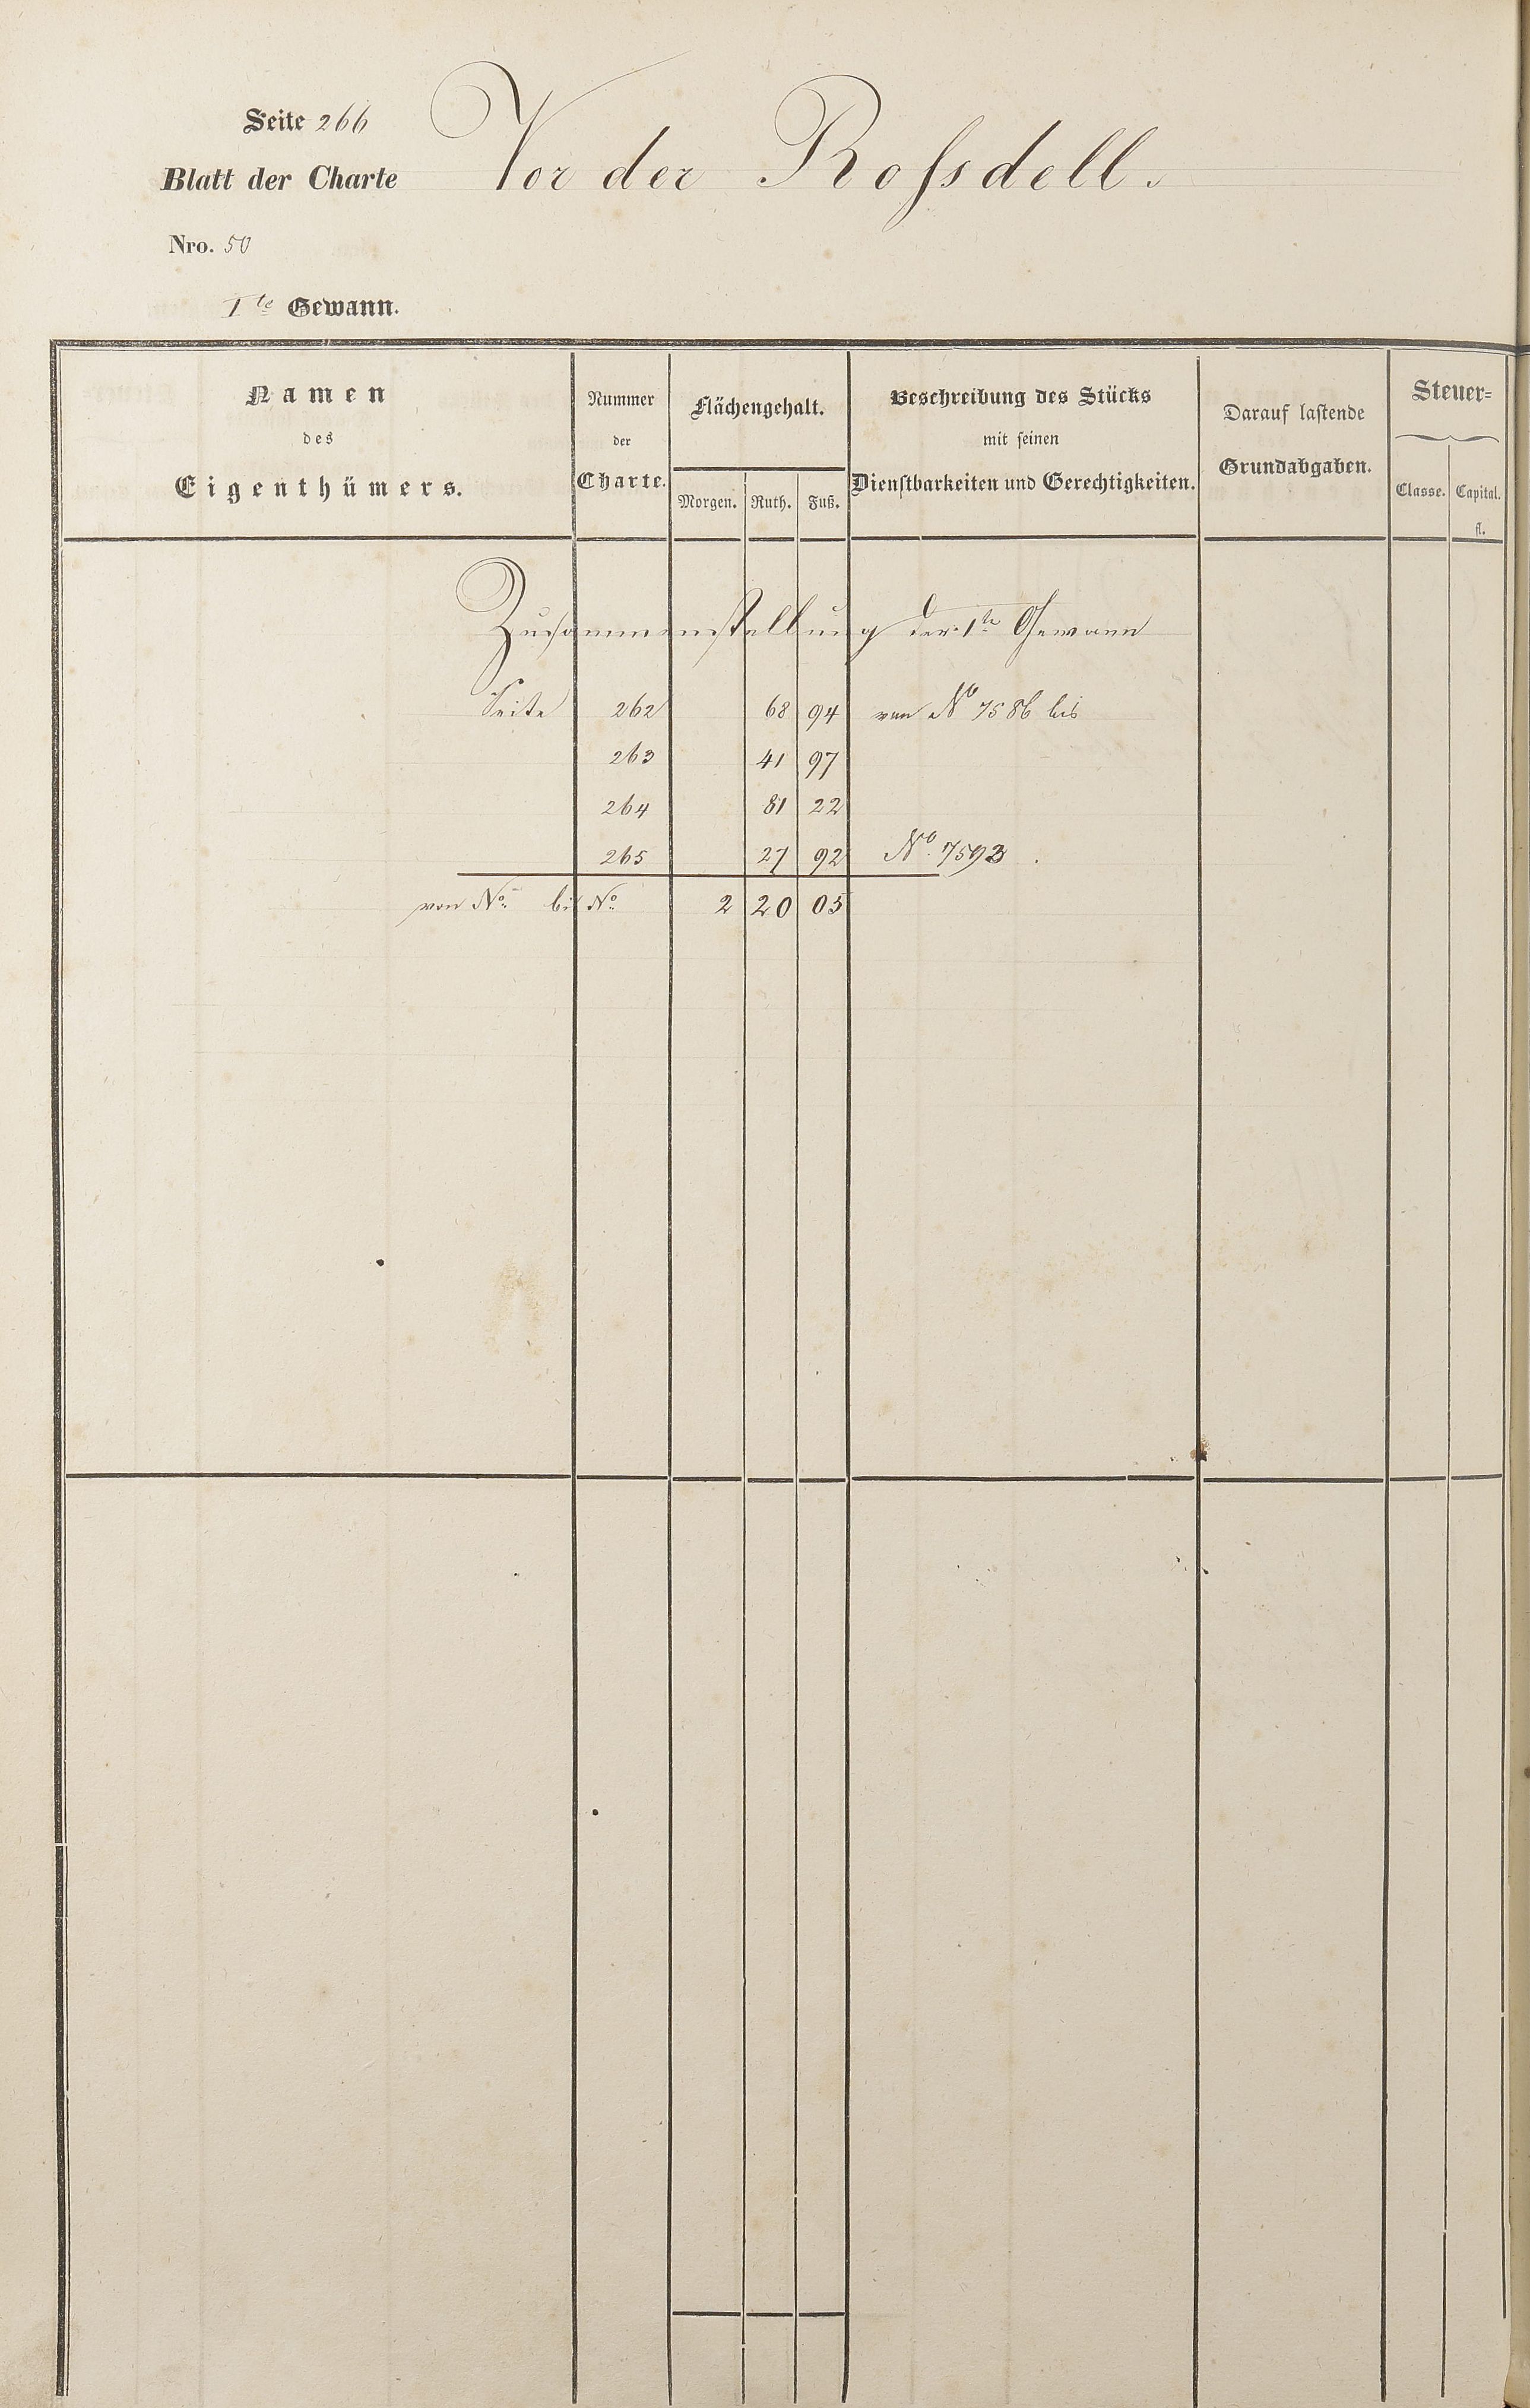 Seite 266
Vor der Roſsdell.
Blatt der Charte
Nro. 50
Ite Gewann.
Namen
des
Eigenthümers.
Nummer
der
Charte.
Flächengehalt.
Morgen. Ruth. Fuß.
Beschreibung des Stücks
mit seinen
Dienstbarkeiten und Gerechtigkeiten.
Darauf lastende
Grundabgaben.
Steuer=
Classe. Capital.
fl.
Zusammenstellung der 1te Gewann
Seite 262 68 94 von No 7586 bis
263 41 97
264 81 22
265 27 92 No. 7593.
von No. bis No. 2 20 05